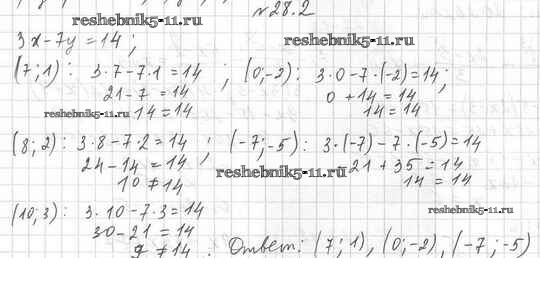 №28.2
reshebnik5-11.ru
3x-7y=14;
reshebnik5-11.ru
(7;1): 3·7-7·1=14 ; (0;-2): 3·0-7·(-2)=14;
21-7=14 0+14=14
reshebnik5-11.ru 14=14 14=14
(8;2): 3·8-7·2=14 ; (-7;-5): 3·(-7)-7·(-5)=14
24-14=14 -21+35=14
reshebnik5-11.ru
10≠14 14=14
(10;3): 3·10-7·3=14
reshebnik5-11.ru
30-21=14
9≠14. Ответ: (7;1), (0;-2), (-7;-5)